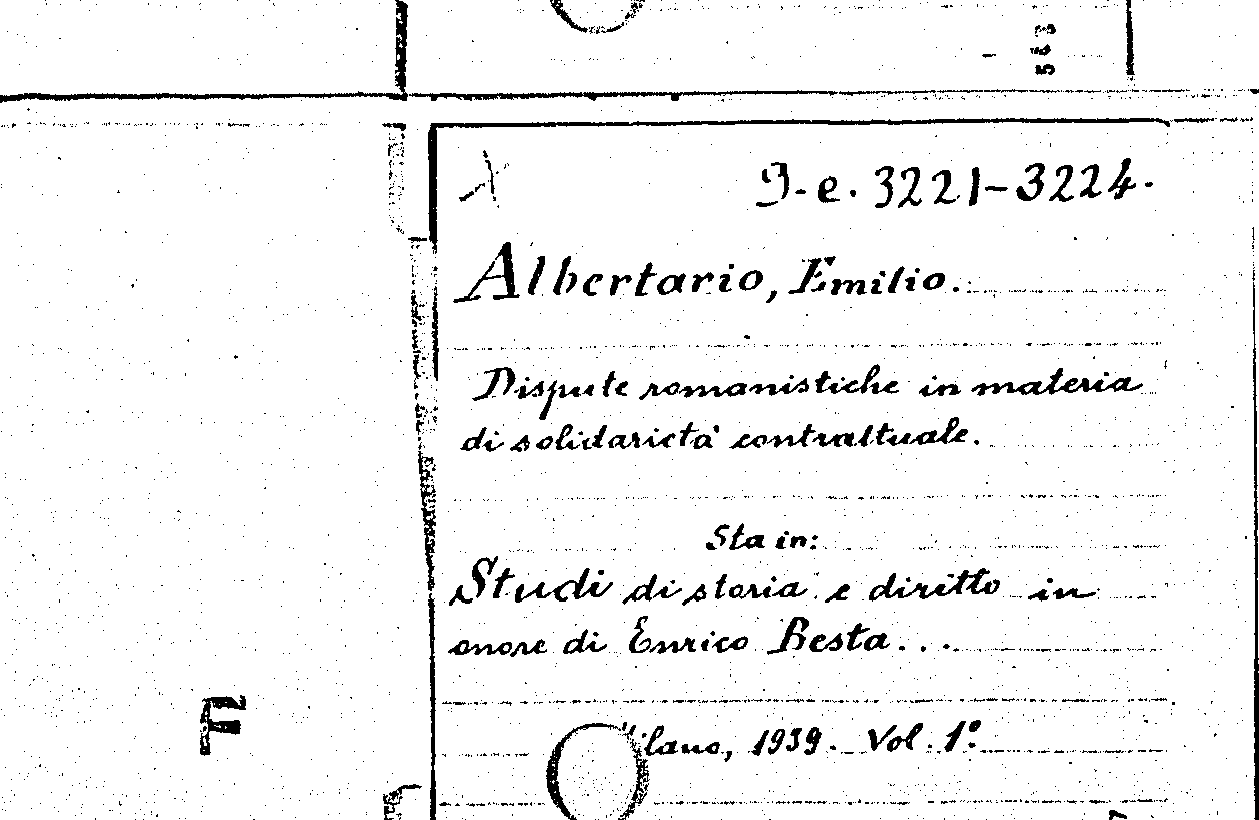 9-e. 3221-3224.
Albertario, Emilio.
Dispute romanistiche in materia
di solidarietà contrattuale.
Sta in:
Studi di storia e diritto in
onore di Enrico Besta...
Milano, 1939. Vol. 1º.
F